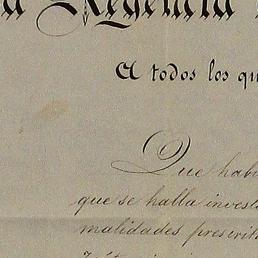 a Regencia
A todos los qu
Que habi
que se halla invest
malidades prescrit